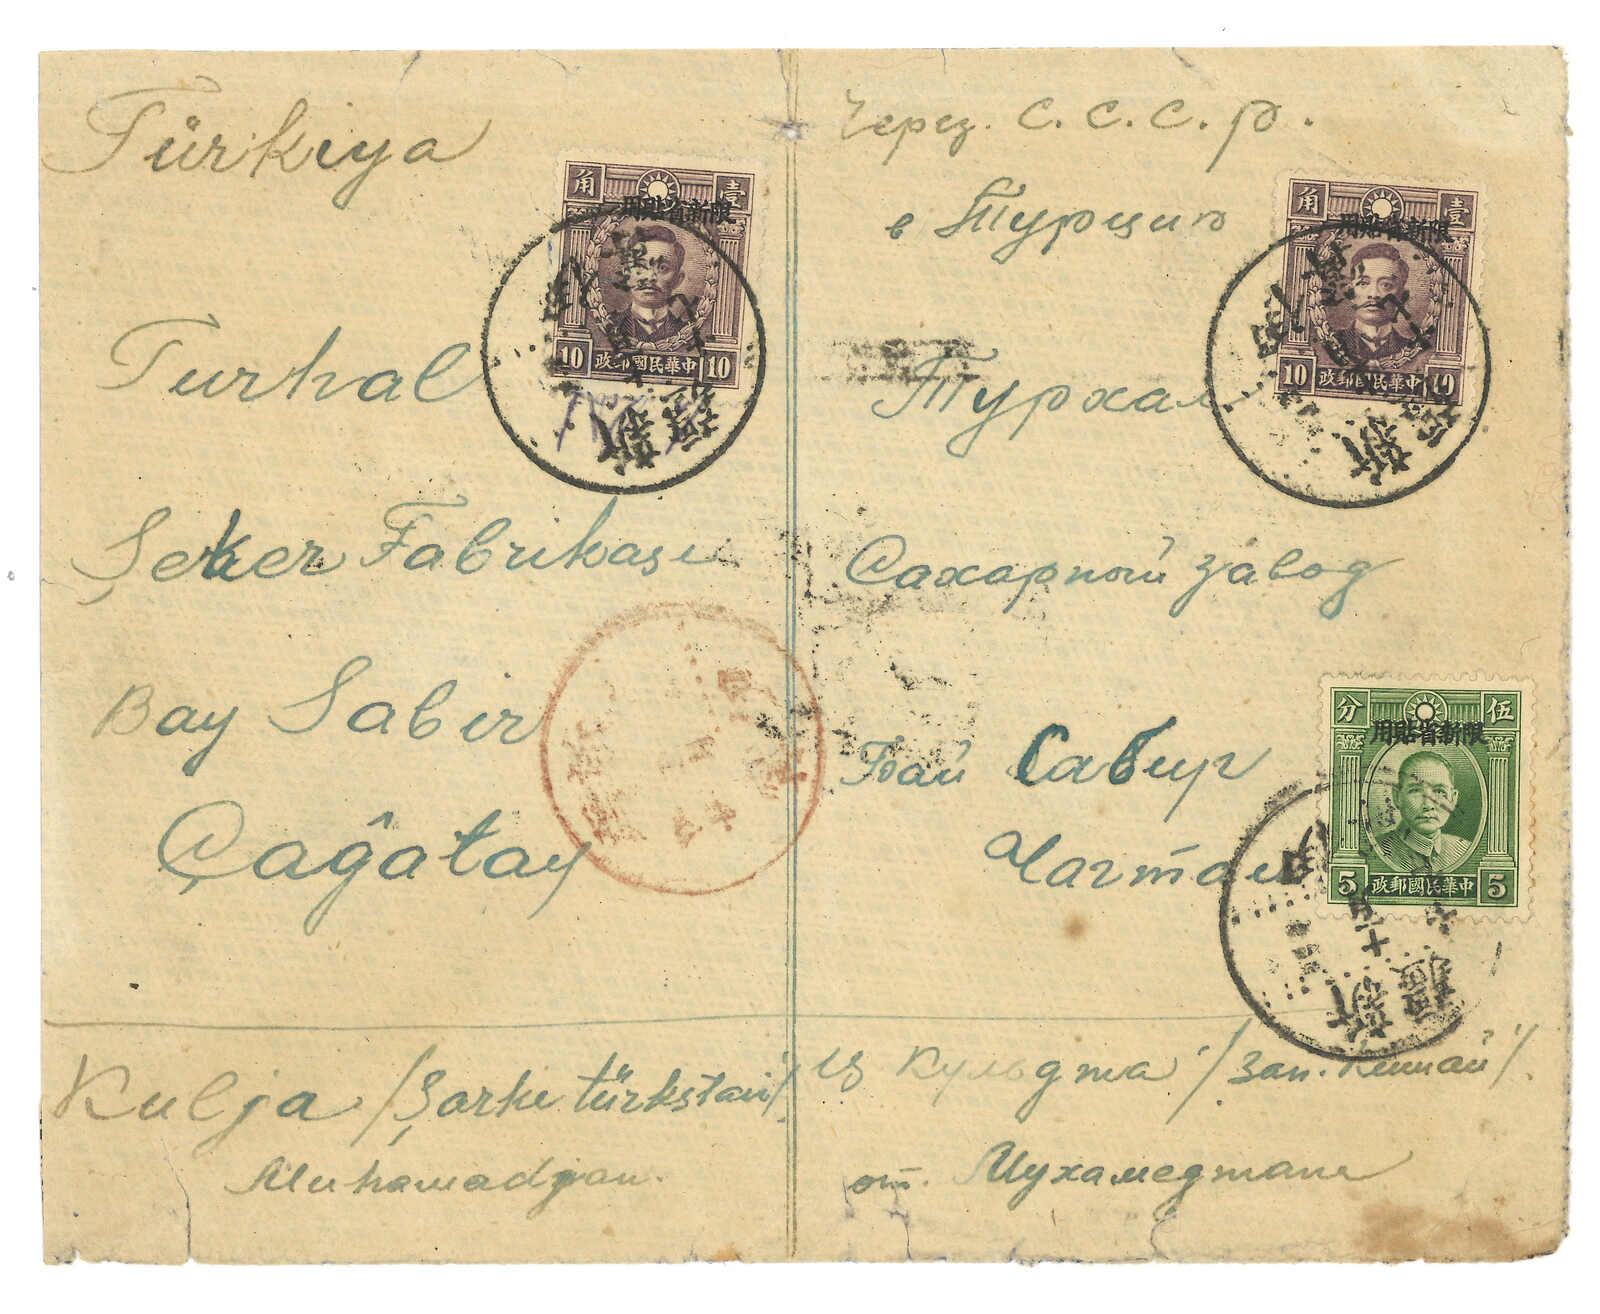 Türkiya
Turhal
Şeker Fabrikası
Bay Sabir
Çağatay
Kulja /Şarki türkstan/
Muhamadjan.
Через. С. С. С. Р.
в Турцию
Турхал
Сахарный завод
Бай Сабир
Чагтай
Из Кульджа /Зап. Китай/.
от. Мухамеджана
角 壹
用貼省新限
10 政郵國民華中 10
角 壹
用貼省新限
10 政郵國民華中 10
分 伍
用貼省新限
5 政郵國民華中 5